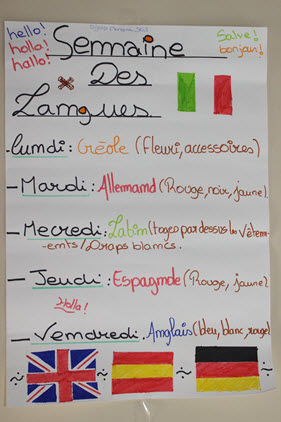 hello!
hollo!
hallo!
Salve!
bonjou!
Semaine
Des
Langues
-Lundi: Créole (Fleuri, accessoires)
-Mardi: Allemand (Rouge, noir, jaune).
-Mecredi: Latin (toges par dessus les vêtem-
-ents/Draps blancs.
-Jeudi: Espagnole (Rouge, jaune).
Holla!
-Vendredi: Anglais (bleu, blanc, rouge)